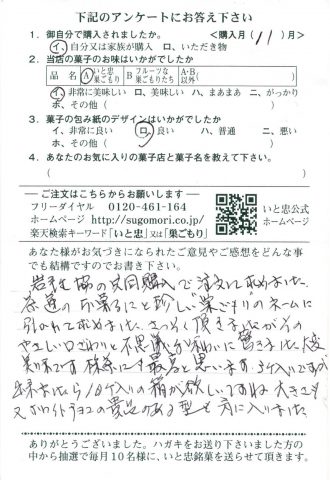 下記のアンケートにお答え下さい
1. 御自分で購入されましたか。 <購入月( 11 )月>
イ、自分又は家族が購入 ロ、いただき物
2. 当店の菓子のお味はいかがでしたか
品 名 A いと忠巣ごもり B フルーツな巣ごもりたち A・B以外( )
イ、非常に美味しい ロ、美味しい ハ、まあまあ ニ、がっかり
ホ、その他( )
3. 菓子の包み紙のデザインはいかがでしたか
イ、非常に良い ロ、良い ハ、普通 ニ、悪い
ホ、その他( )
4. あなたのお気に入りの菓子店と菓子名を教えて下さい。
( )
ご注文はこちらからお願いします
フリーダイヤル 0120-461-164
ホームページ http://sugomori.co.jp/
楽天検索キーワード「いと忠」又は「巣ごもり」
いと忠公式
ホームページ
あなた様がお気づきになられたご意見やご感想をどんな事
でも結構ですのでお書き下さい。
の共同購入で注文し求めました。
茶道のお菓子にと珍しい巣ごもりのネームに
引かれて求めました。さっそく頂きました
やさしい口ざわりと不思議な味わいに驚きました 大変
美味です 抹茶にも最高と思います。
10ケ入りの箱が欲しいですね 大きさも
又ホワイトチョコの の ある型も 気に入りました
ありがとうございました。ハガキをお送り下さいました方の
中から抽選で毎月10名様に、いと忠銘菓を送らせて頂きます。